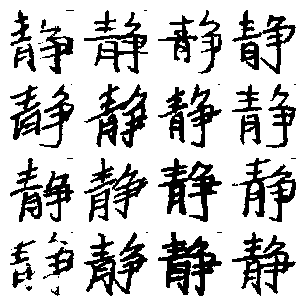 静静静静
静静静静
静静静静
静静静静